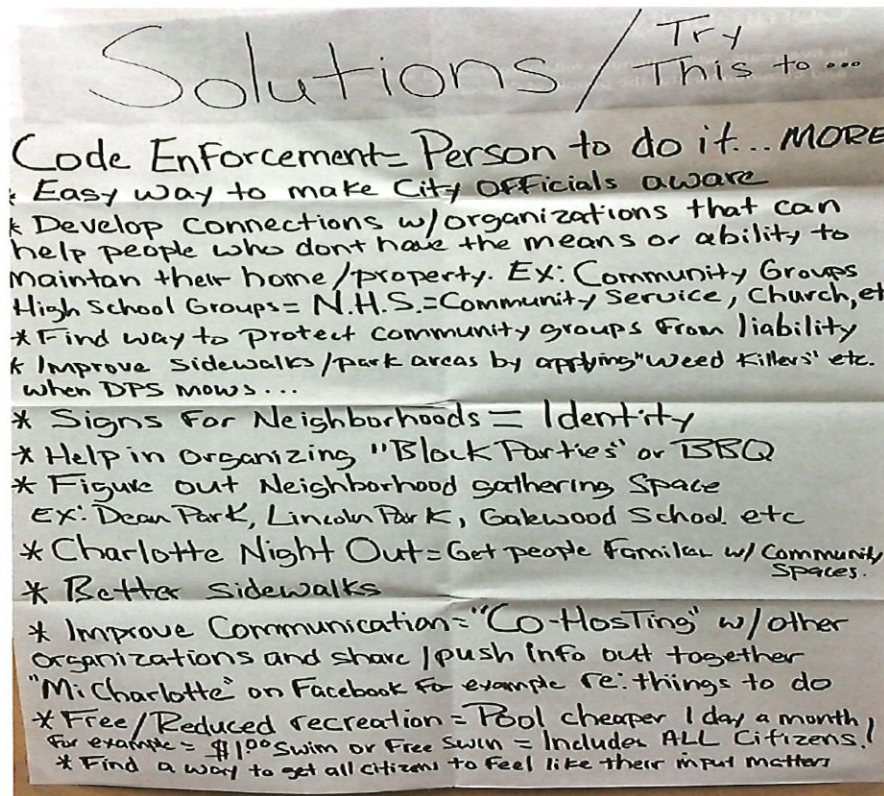 Solutions / Try
This to ...
Code Enforcement = Person to do it... MORE
* Easy way to make City Officials aware
* Develop connections w/organizations that can
help people who dont have the means or ability to
maintan their home/property. Ex: Community Groups
High School Groups = N.H.S. = Community Service, Church, et
* Find way to protect community groups from liability
* Improve sidewalks/park areas by applying "Weed Killers" etc.
when DPS mows...
* Signs For Neighborhoods = Identity
* Help in organizing "Block Parties" or BBQ
* Figure out Neighborhood gathering Space
Ex: Dean Park, Lincoln Park, Galewood School etc
* Charlotte Night Out = Get people Familar w/ Community
Spaces.
* Better Sidewalks
* Improve Communication = "Co-Hosting" w/other
organizations and share/push info out together
"Mi Charlotte" on Facebook for example re: things to do
* Free/Reduced recreation = Pool cheaper 1 day a month,
for example = $1.00 Swim or Free Swim = Includes ALL Citizens!
* Find a way to get all citizens to feel like their input matters